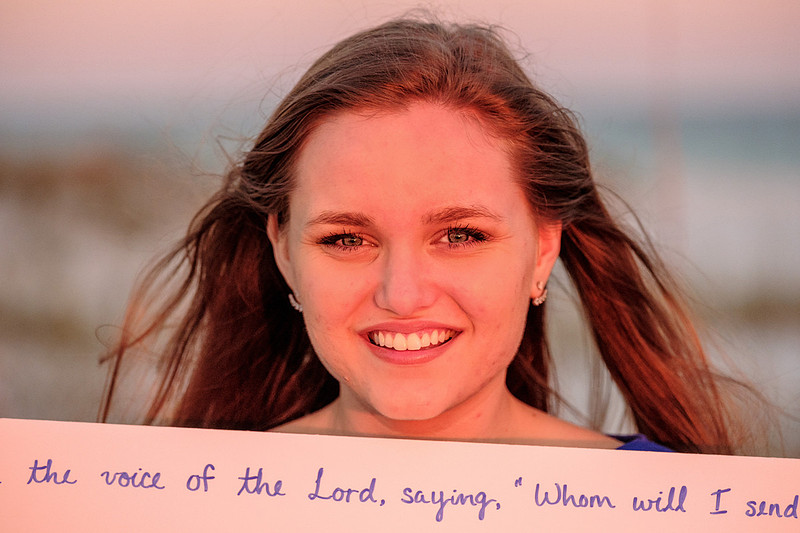 the voice of the Lord, saying, "Whom will I send